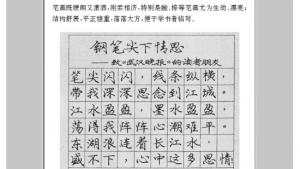 笔画既硬朗又潇洒,刚柔相济,特别是撇、捺等笔画尤为生动、漂亮;
结构舒展,平正稳重,落落大方,便于学书者临写。
钢笔尖下情思
——致《武汉晚报》的读者朋友
笔尖闪闪,线条纵横,
带我深深思念到江城。
江水盈盈,墨水盈盈,
荡得我阵阵心潮难平。
东湖浪连着长江水,
盛不下,心中这多思情